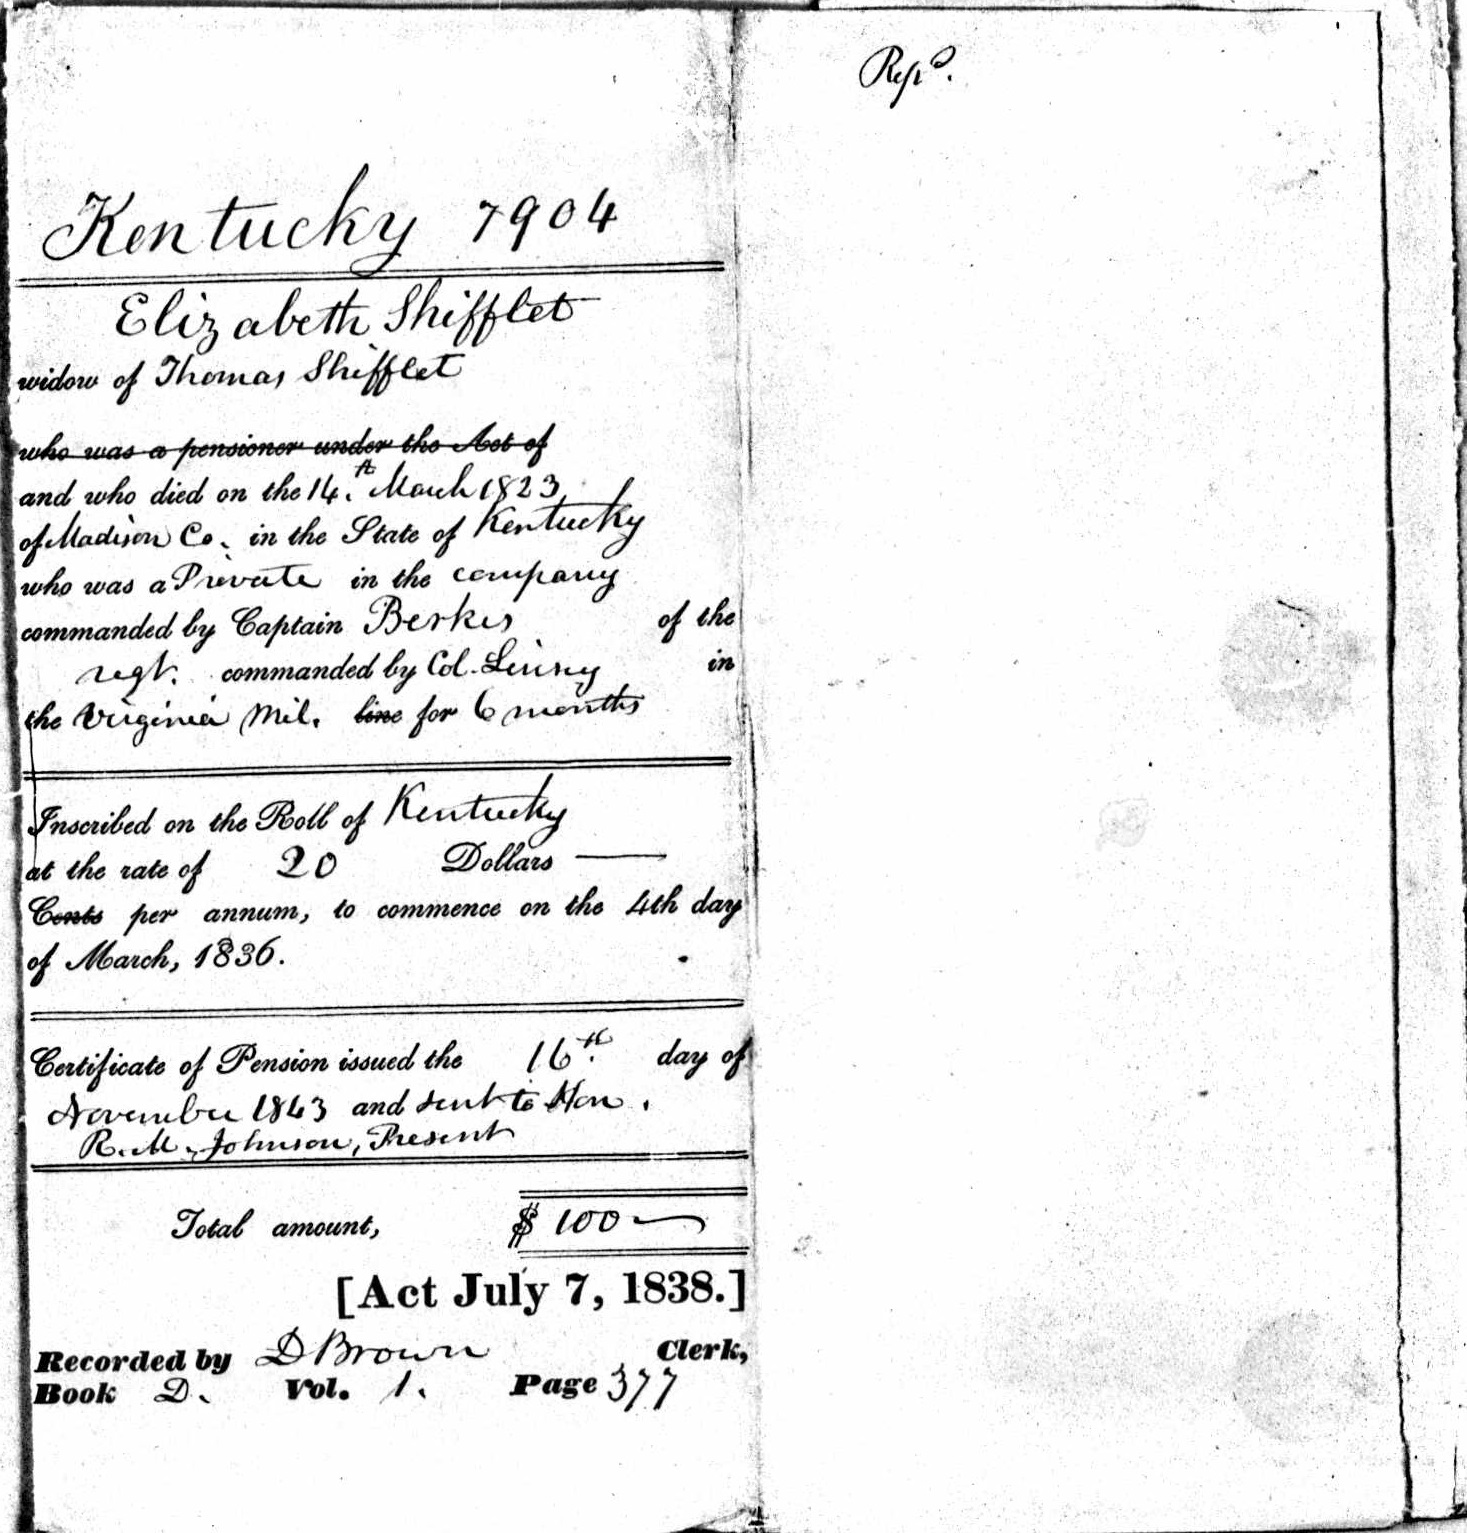 Kentucky 7904
Elizabeth Shifflet
widow of Thomas Shifflet
who was a pensioner under the Act of
and who died on the 14.th March 1823
of Madison Co. in the State of Kentucky
who was a Private in the company
commanded by Captain Berkes of the
regt. commanded by Col. in
the Virginia Mil. line for 6 months
Inscribed on the Roll of Kentucky
at the rate of 20 Dollars —
Cents per annum, to commence on the 4th day
of March, 1836.
Certificate of Pension issued the 16th. day of
November 1843 and sent to Hon.
R. M. Johnson, Present
Total amount, $ 100 —
[Act July 7, 1838.]
Recorded by D Brown Clerk,
Book D. Vol. 1. Page 377
Repd.